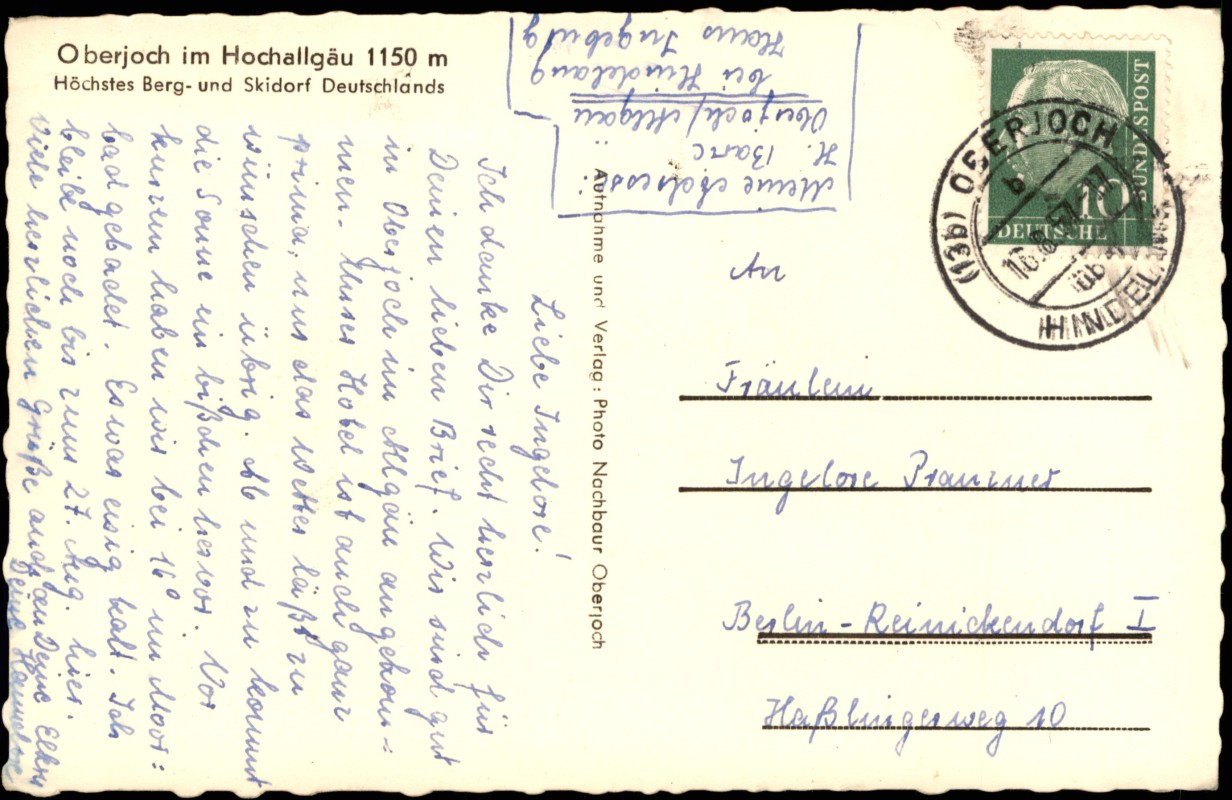 Oberjoch im Hochallgäu 1150 m
Höchstes Berg- und Skidorf Deutschlands
Meine Adresse:
H. Barc
Oberjoch/Allgäu
bei Hindelang
Haus Ingeburg
Liebe Ingelore!
Ich danke Dir recht herzlich für
Deinen lieben Brief. Wir sind gut
in Oberjoch im Allgäu angekom-
men. Unser Hotel ist auch ganz
prima, nur das Wetter läßt zu
wünschen übrig. Ab und zu kommt
die Sonne ein bißchen hervor. Vor
kurzem haben wir bei 16° im Moor-
bad gebadet. Es war eisig kalt. Ich
bleibe noch bis zum 27. Aug. hier.
Viele herzlichen Grüße auch an Deine Eltern
Deine Hannelore
Aufnahme und Verlag: Photo Nachbaur Oberjoch
DEUTSCHE
BUNDESPOST
10
(13b) OBERJOCH
b
HINDELANG
An
Fräulein
Ingelore
Berlin-Reinickendorf I
Haßlingerweg 10